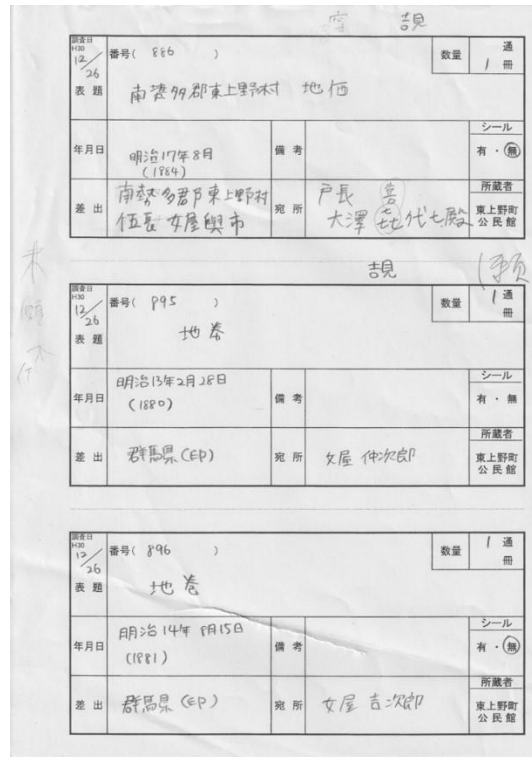 調査日
H30
12/26
番号( 886 )
数量
通
1 冊
表題
南勢多郡東上野村 地価
年月日
明治17年8月
(1884)
備考
シール
有・無
差出
南勢多郡東上野村
伍長 女屋與市
宛所
戸長
大澤 㐂代七殿
喜
所蔵者
東上野町
公民館
調査日
H30
12/26
番号( 895 )
数量
1 通
冊
表題
地券
年月日
明治13年2月28日
(1880)
備考
シール
有・無
差出
群馬県(印)
宛所
女屋 仲次郎
所蔵者
東上野町
公民館
調査日
H30
12/26
番号( 896 )
数量
1 通
冊
表題
地巻
年月日
明治14年8月15日
(1881)
備考
シール
有・無
差出
群馬県(印)
宛所
女屋 吉次郎
所蔵者
東上野町
公民館